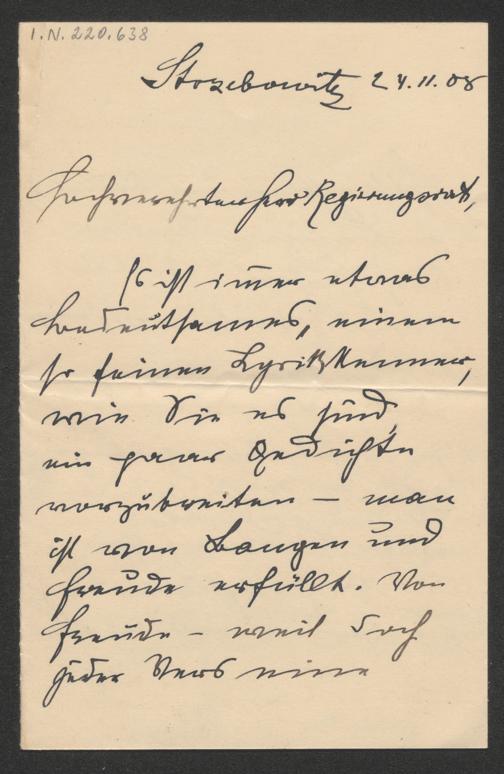 I.N. 220.638
Strzebowitz 24.11.08
Hochverehrter Herr Regierungsrat,
Es ist im̄er etwas
bedeutsames, einem
so feinen Lyrikkenner,
wie Sie es sind,
ein paar Gedichte
vorzubreiten – man
ist von Bangen und
Freude erfüllt. Von
Freude – weil doch
jeder Vers eine